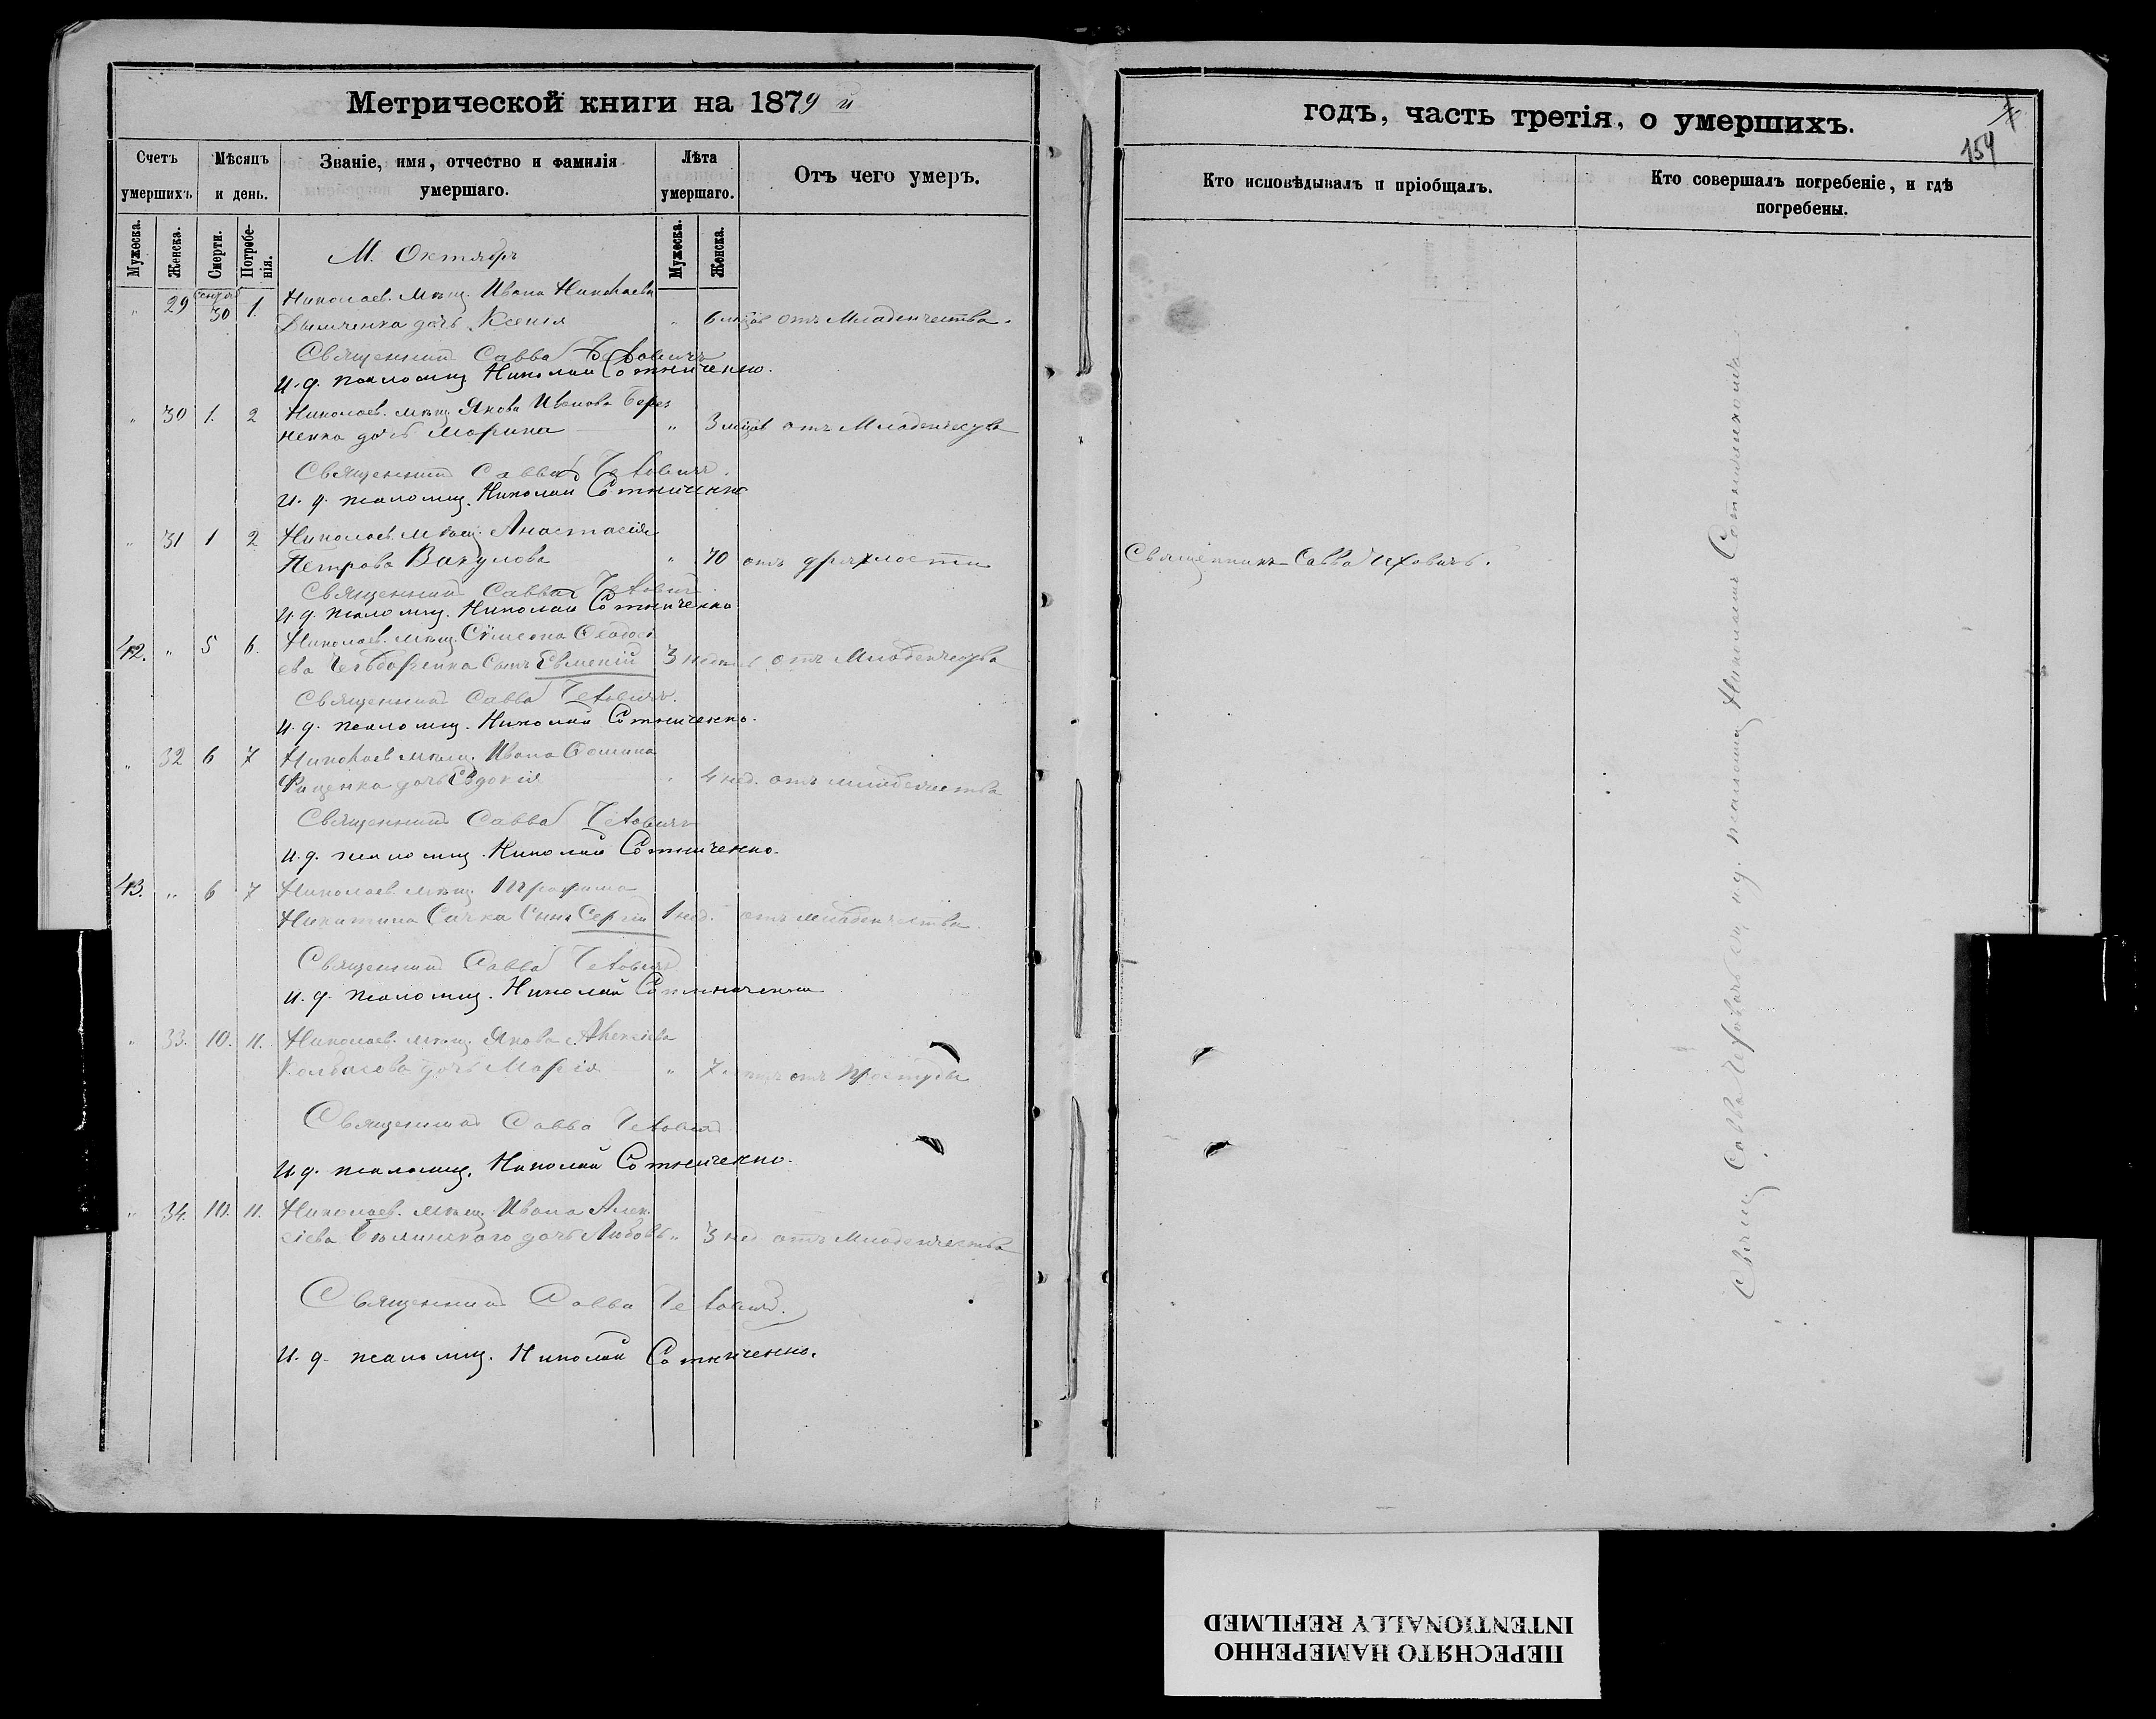 Метрической книги на 1879 й
Счетъ умершихъ
Мѣсяцъ и день.
Званіе, имя, отчество и фамилія умершаго.
Лѣта умершаго.
Отъ чего умеръ.
Мужеска.
Женска.
Смерти.
Погребенія.
Мужеска.
Женска.
М. Октябрь
" 29 30 1. Николаев. мѣщ. Ивана Николаева
дочь Ксенія " 6 мѣсяц отъ Младенчества.
Священникъ Савва Чеховичъ
И. д. псаломщ. Николай Сотниченко.
" 30 1. 2 Николаев. мѣщ. Якова Иванова Берез
ненка дочь Марина " 3 мѣсяц отъ Младенчества
Священникъ Савва Чеховичъ.
И. д. псаломщ. Николай Сотниченко
" 31 1 2 Николаев. мѣщ. Анастасія
Петрова Вакулова " 70 отъ дряхлости
Священникъ Савва Чеховичъ.
И. д. псаломщ. Николай Сотниченко
42. " 5 6. Николаев. мѣщ. Сѵмеона Ѳеодосі
ева сынъ Евменій 3 недель отъ Младенчества
Священникъ Савва Чеховичъ.
И. д. псаломщ. Николай Сотниченко.
" 32 6 7 Николаев мѣщ. Ивана Ѳомина
дочь Евдокія " 4 нед. отъ младенчества
Священникъ Савва Чеховичъ
И. д. псаломщ. Николай Сотниченко.
43. " 6 7 Николаев. мѣщ. Трофима
Никитина Сачка сынъ Сергій 1 нед. отъ младенчества.
Священникъ Савва Чеховичъ
И. д. псаломщ. Николай Сотниченко
" 33. 10. 11. Николаев. мѣщ. Якова Алексіева
Колбасова дочь Марія " 7 отъ простуды
Священникъ Савва Чеховичъ
И д. псаломщ. Николай Сотниченко.
" 34. 10. 11. Николаев. мѣщ. Ивана Алек
сіева Бѣлинскаго дочь Любовь " 3 нед отъ Младенчества
Священникъ Савва Чеховичъ.
И. д. псаломщ. Николай Сотниченко.
годъ, часть третія, о умершихъ.
154
Кто исповѣдывалъ и пріобщалъ.
Кто совершалъ погребеніе, и гдѣ погребены.
Священникъ Савва Чеховичъ.
Свящ Савва Чеховичъ съ ид. псаломщ Николаемъ Сотниченкомъ
ПЕРЕСНЯТО НАМЕРЕННО
INTENTIONALLY REFILMED